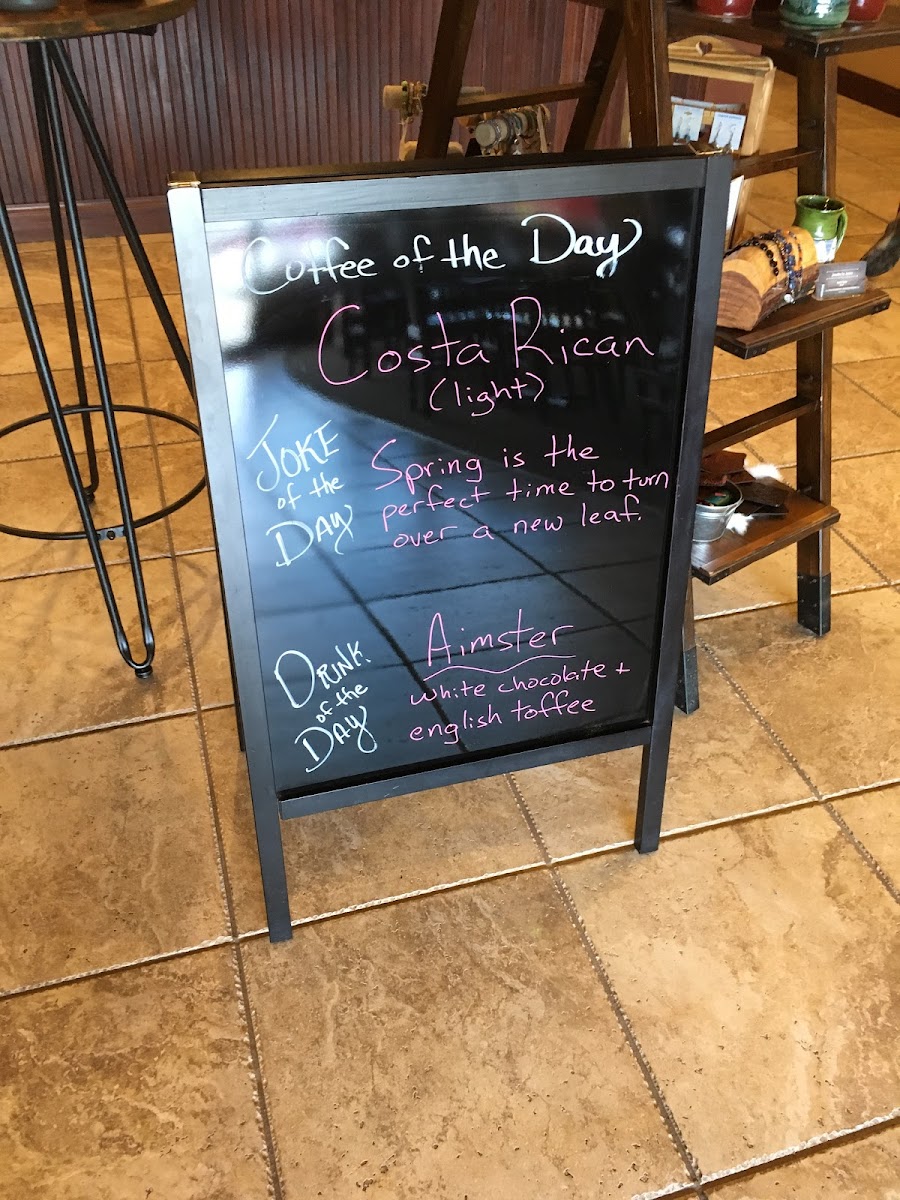 Coffee of the Day
Costa Rican
(light)
JOKE
of the
DAY
Spring is the
perfect time to turn
over a new leaf.
DRINK
of the
DAY
Aimster
white chocolate +
english toffee